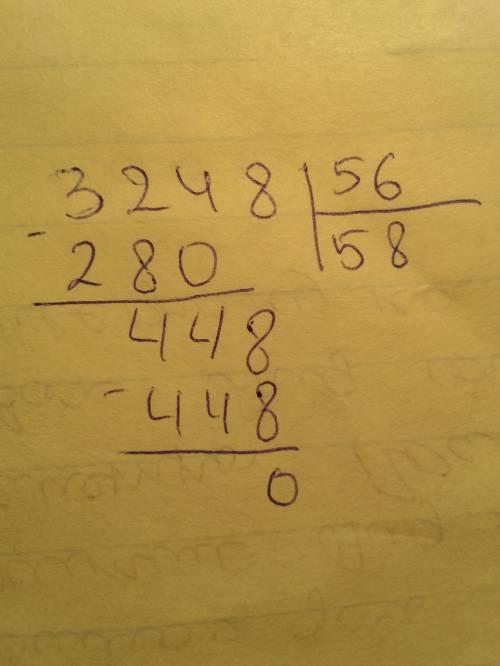 3248 | 56
- 280 | 58
448
- 448
0